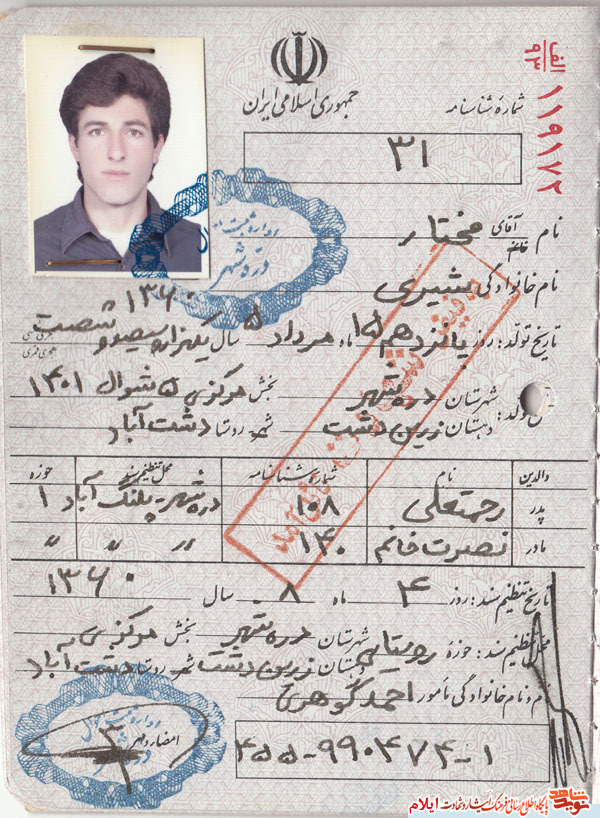 الف
۹۳
۱۱۹۱۷۲
جمهوری اسلامی ایران
شماره شناسنامه
۳۱
نام آقای خانم مختار
نام خانوادگی بشیری
۱۳۶۰
تاریخ تولد: روز پانزدهم ۱۵ ماه مرداد ۵ سال یکهزار و سیصد و شصت
هجری شمسی
هجری قمری
۵ شوال ۱۴۰۱
محل تولد: شهرستان دره شهر بخش مرکزی
دهستان زرین دشت شهر روستا دشت آباد
والدین نام شماره شناسنامه محل تنظیم سند حوزه
پدر رحمتعلی ۱۰۸ دره شهر - پلنگ آباد ۱
مادر نصرت خانم ۱۴۰ 〃 〃 〃
تاریخ تنظیم سند: روز ۴ ماه ۸ سال ۱۳۶۰
محل تنظیم سند: حوزه روستایی شهرستان دره شهر بخش مرکزی
دهستان زرین دشت شهر روستا دشت آباد
نام و نام خانوادگی مأمور احمد گوهری
امضاء و مهر
۴۵۵-۹۹۰۴۷۴-۱
نوید شاهد
پایگاه اطلاع رسانی فرهنگ ایثار و شهادت ایلام